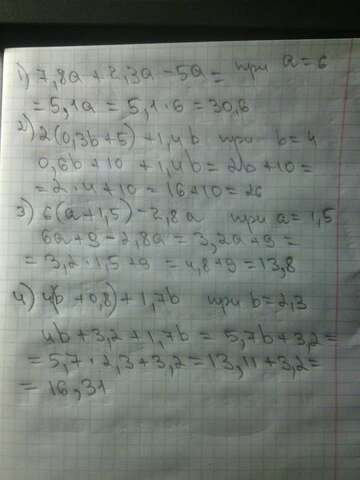 1) 7,8a + 2,3a - 5a = при a = 6
= 5,1a = 5,1 · 6 = 30,6
2) 2(0,3b + 5) + 1,4b при b = 4
0,6b + 10 + 1,4b = 2b + 10 =
= 2 · 4 + 10 = 16 + 10 = 26
3) 6(a + 1,5) - 2,8a при a = 1,5
6a + 9 - 2,8a = 3,2a + 9 =
= 3,2 · 1,5 + 9 = 4,8 + 9 = 13,8
4) 4(b + 0,8) + 1,7b при b = 2,3
4b + 3,2 + 1,7b = 5,7b + 3,2 =
= 5,7 · 2,3 + 3,2 = 13,11 + 3,2 =
= 16,31